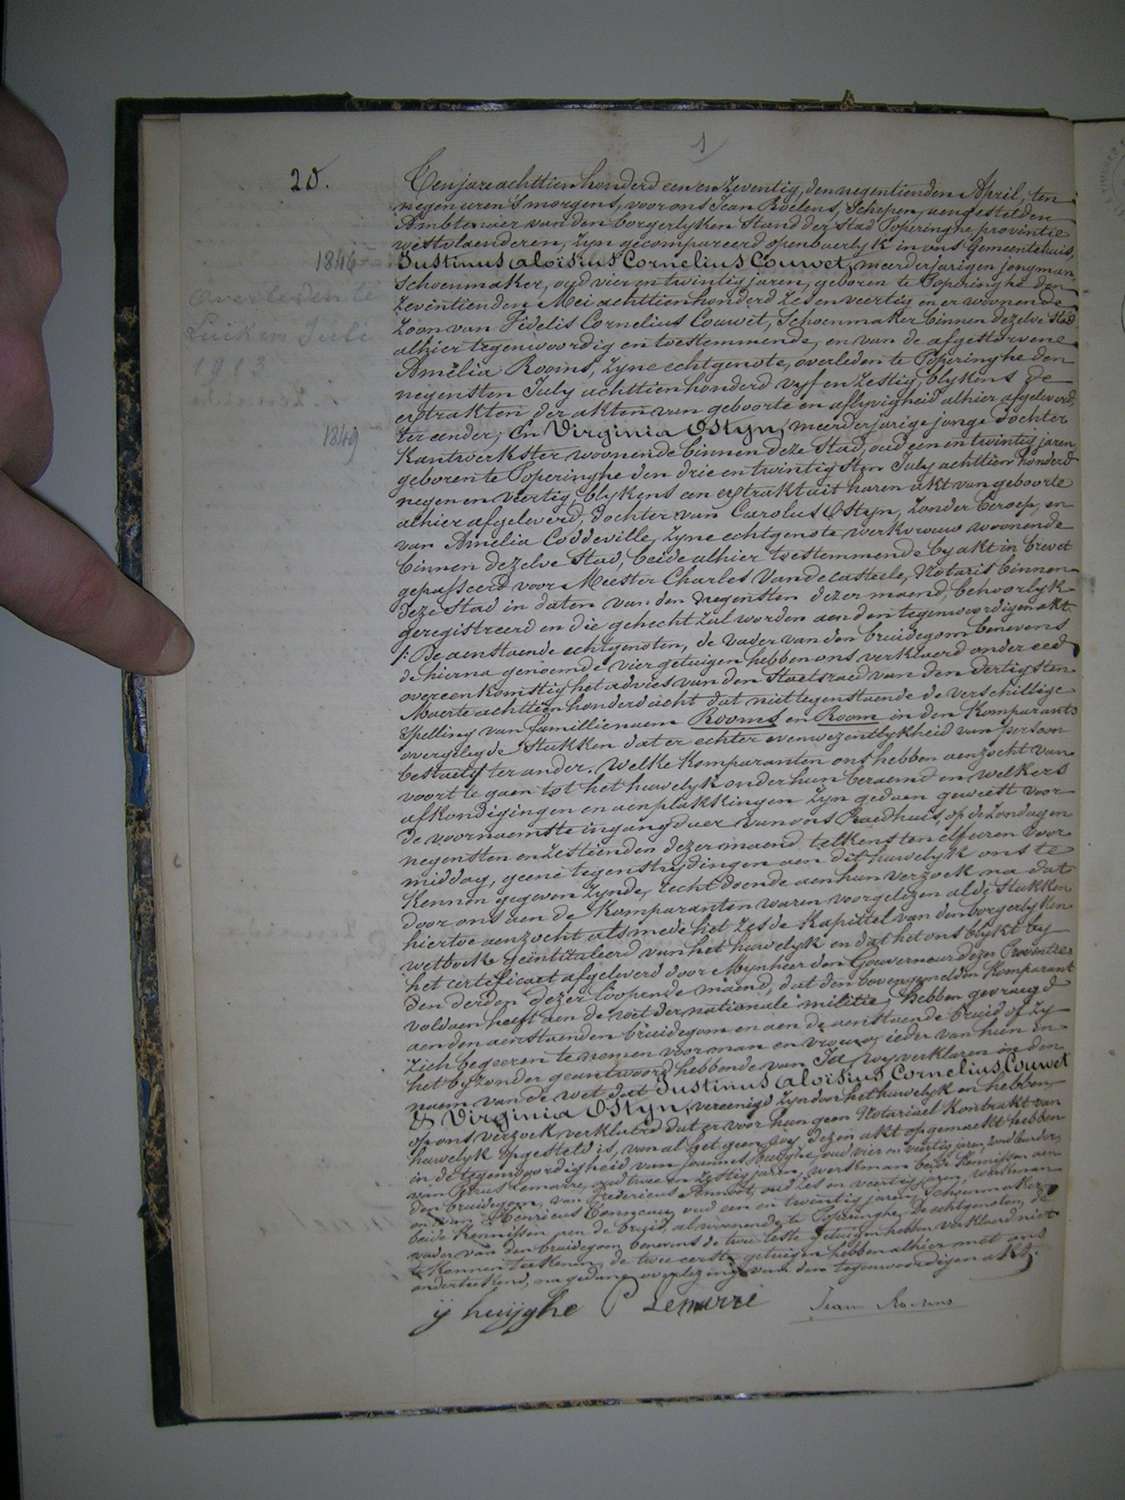 1
20.
1846
Overleden te
Luik en Juli
1913
1849
Ten jare achttien honderd een en Zeventig, den negentienden April, ten
negen uren 's morgens, voor ons Jean Roelens, Schepen, aengestelden
Ambtenaer van den borgerlyken Stand der Stad Poperinghe, provintie
westvlaenderen, Zyn gecompareerd openbaerlyk in ons Gemeentehuis,
Justinus Aloïsius Cornelius Couwet, meerderjarigen jongman
Schoenmaker, oud vier en twintig jaren, geboren te Poperinghe den
Zeventienden Mei achttien honderd Zes en veertig en er woonende
Zoon van Fidelis Cornelius Couwet, Schoenmaker binnen dezelve Stad
alhier tegenwoordig en toestemmende, en van de afgestorvene
Amelia Rooms, Zyne echtgenote, overleden te Poperinghe den
negensten July achttien honderd vyf en Zestig, blykens de
extrakten der akten van geboorte en aflyvigheid alhier afgeleverd,
ter eender; En Virginia Ostyn, meerderjarige jonge dochter
Kantwerkster woonende binnen deze Stad, oud een en twintig jaren
geboren te Poperinghe den drie en twintigsten July achttien honderd
negen en veertig, blykens een extrakt uit haren akt van geboorte
alhier afgeleverd, dochter van Carolus Ostyn, Zonder beroep, en
van Amelia Coddeville, Zyne echtgenote, werkvrouw woonende
binnen dezelve Stad, beide alhier toestemmende by akt in brevet
gepasseerd voor Meester Charles Vandecasteele, Notaris binnen
deze Stad in daten van den negensten dezer maend, behoorlyk
geregistreerd en die gehecht Zal worden aen den tegenwoordigen akt
/: De aenstaende echtgenoten, de vader van den bruidegom benevens
de hierna genoemde vier getuigen hebben ons verklaerd onder eed
overeenkomstig het advies van den Staetsraed van den dertigsten
Maerte achttien honderd acht dat niettegenstaende de verschillige
spelling van familienaem Rooms en Room in den Komparants
overgelegde Stukken dat er echter eenwezentlykheid van persoon
bestaet/ ter ander. Welke Komparanten ons hebben aenzocht van
voort te gaen tot het huwelyk onder hun beraemd en welkers
afkondigingen en aenplakkingen Zyn gedaen geweest voor
de voornaemste ingangduer van ons Raedhuis, op de Zondagen
negensten en Zestienden dezer maend telkens ten elf uren voor
middag, geene tegenstrydingen aen dit huwelyk ons te
Kennen gegeven Zynde, recht doende aen hun verzoek na dat
door ons aen de Komparanten waren voorgelezen al de Stukken
hiertoe aenzocht alsmede het Zesde Kapittel van den borgerlyken
wetboek geïntituleerd van het huwelyk en dat het ons blykt by
het certificaet afgeleverd door Mynheer den Gouverneur dezer Provintie
den derden dezer loopende maend, dat den bovengemelden Komparant
voldaen heeft aen de wet der nationale militie; Hebben gevraegd
aen den aenstaenden bruidegom en aen de aenstaende bruid of Zy
Zich begeeren te nemen voor man en vrouw, ieder van hun in
het byzonder geantwoord hebbende van Ja, wy verklaren in den
naem van de wet dat Justinus Aloïsius Cornelius Couwet
& Virginia Ostyn, vereenigd Zyn door het huwelyk en hebben
op ons verzoek verklaerd dat er voor hun geen Notarieel Kontrakt van
huwelyk opgesteld is, van al het geen wy dezen akt opgemaekt hebben
in de tegenwoordigheid van Joannes huyghe, oud vier en veertig jaren,
van Petrus Lemaire, oud twee en Zestig jaren, werkman beide Kennissen aen
den bruidegom, van Fredericus oud Zes en veertig jaren, werkman
en van Henricus oud een en twintig jaren, Schoenmaker
beide Kennissen aen de bruid, al woonende te Poperinghe; De echtgenoten, de
vader van den bruidegom benevens de twee leste getuigen hebben verklaerd niet
te Kennen teekenen, de twee eerste getuigen hebben alhier met ons
onderteekend, na gedane overlezing van den tegenwoordigen akt.
ij huijghe P Lemaire Jean Roelens